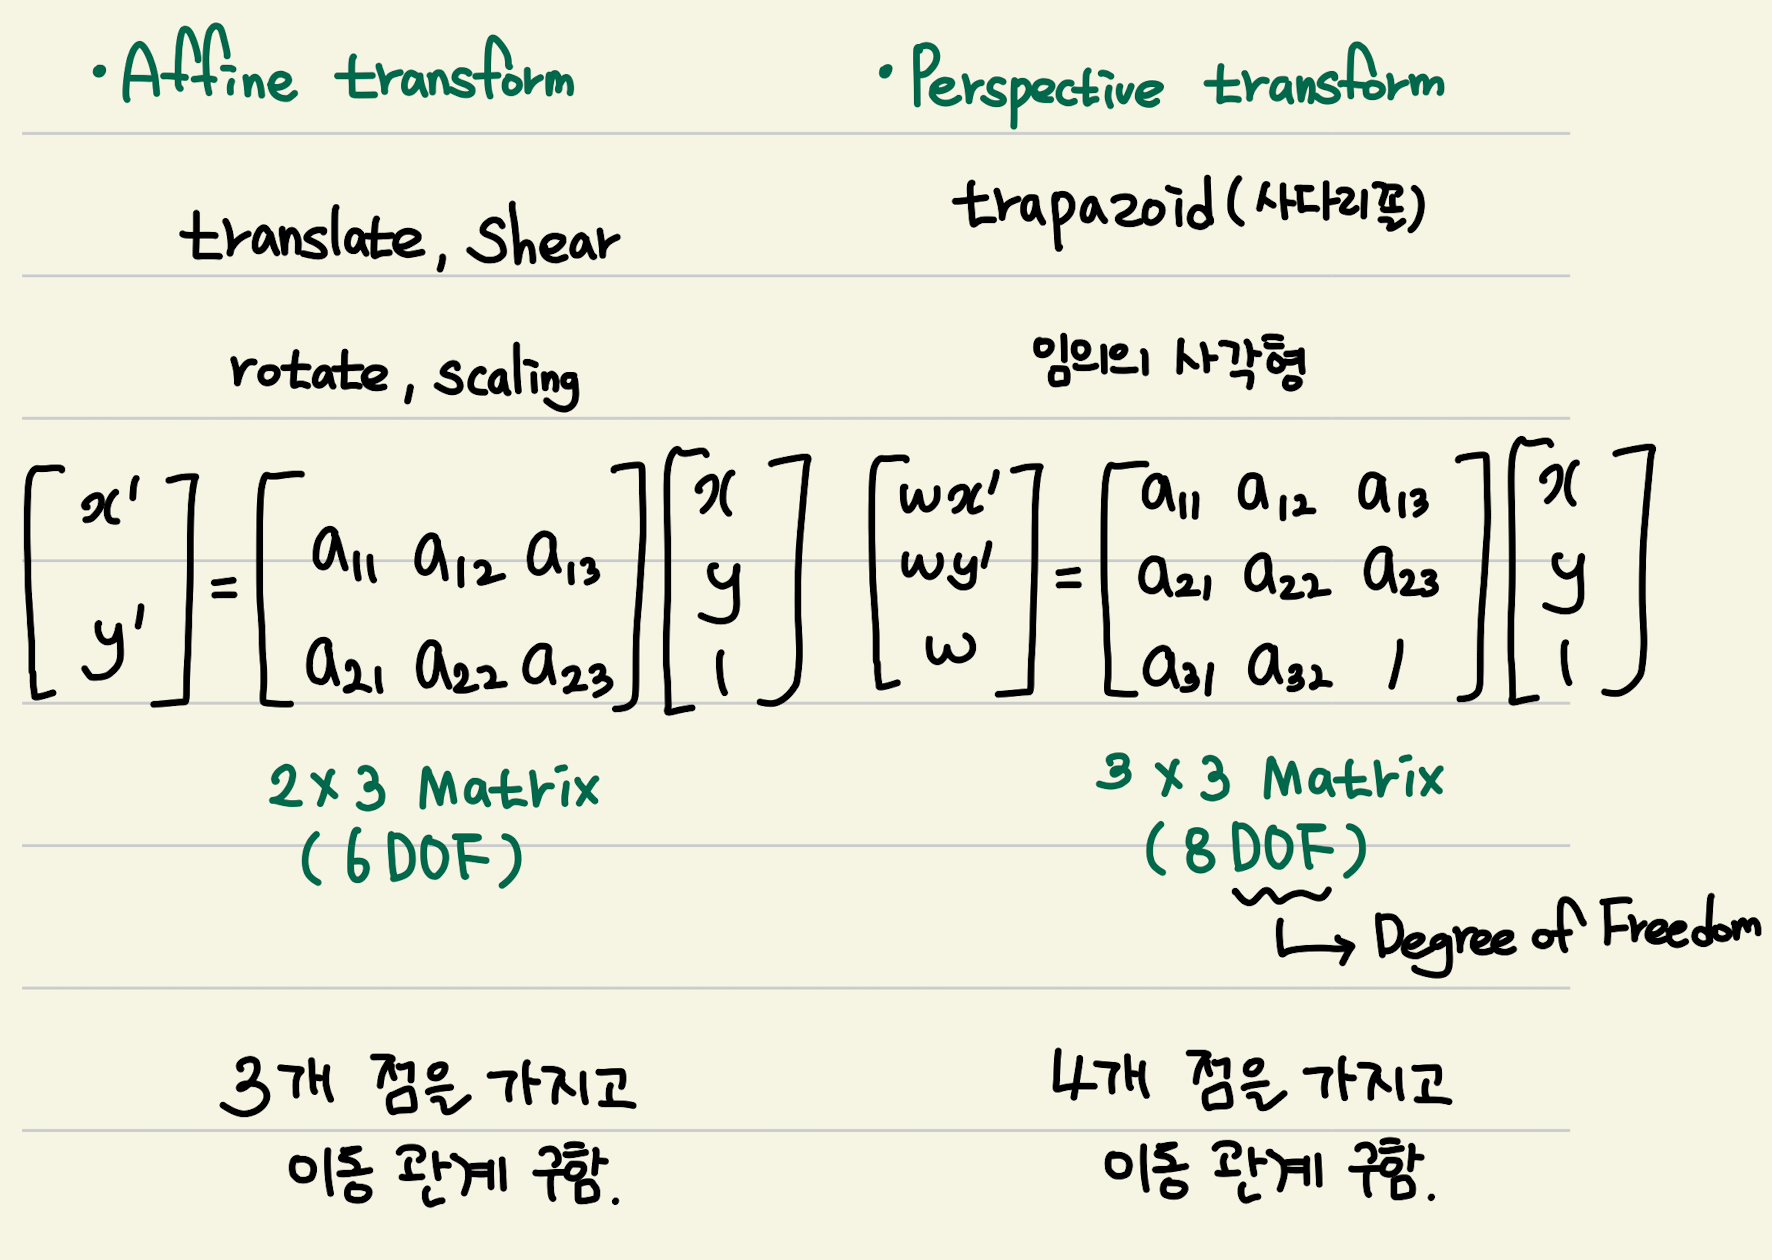 • Affine transform
translate, Shear
rotate, scaling
[x' y'] = [a11 a12 a13
a21 a22 a23] [x y 1]
2×3 Matrix
(6 DOF)
3개 점을 가지고
이동 관계 구함.
• Perspective transform
trapazoid (사다리꼴)
임의의 사각형
[wx' wy' w] = [a11 a12 a13
a21 a22 a23
a31 a32 1] [x y 1]
3×3 Matrix
(8 DOF)
→ Degree of Freedom
4개 점을 가지고
이동 관계 구함.